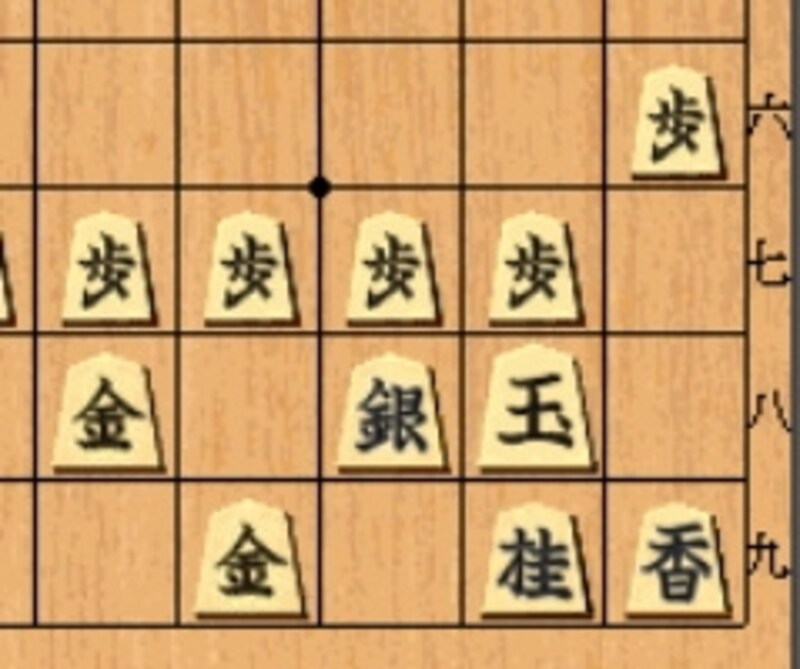 歩 六
歩 歩 歩 歩 七
金 銀 玉 八
金 桂 香 九